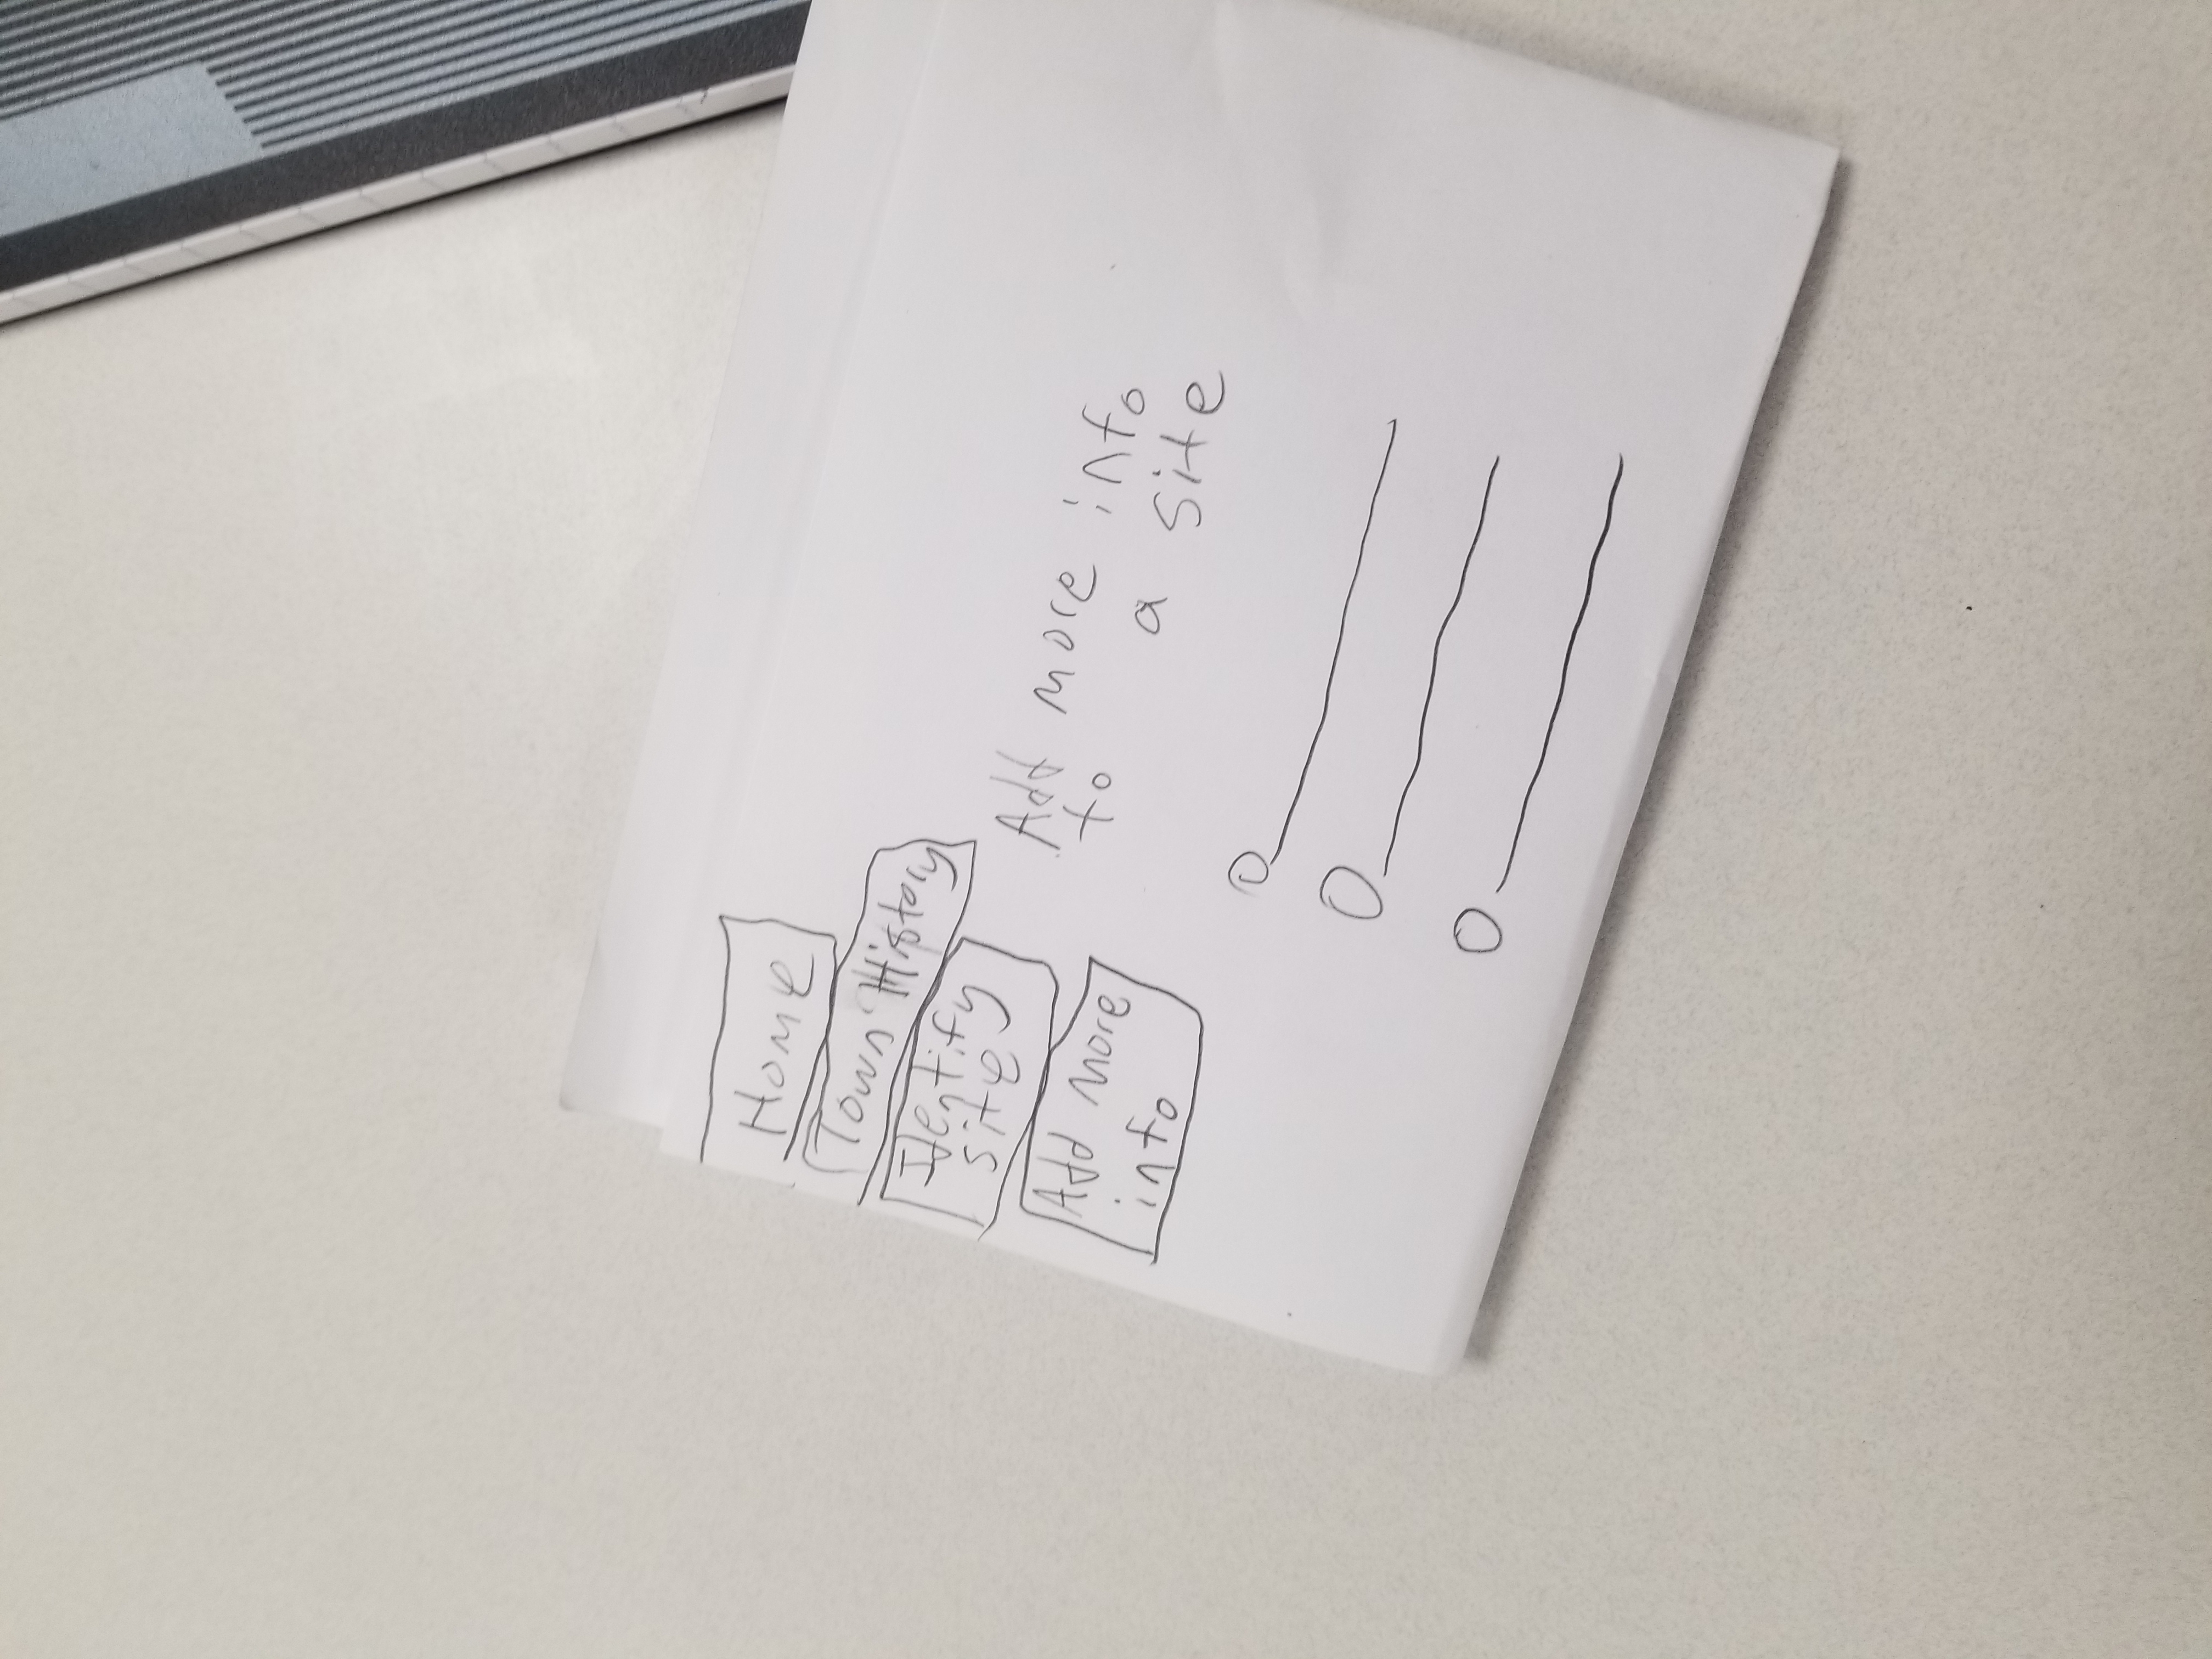 Home
Town History
Identify
site
Add more
info
Add more info
to a site